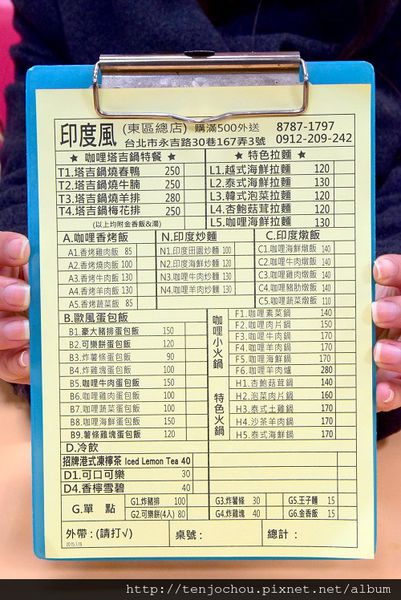 印度風 (東區總店) 購滿500外送 8787-1797
台北市永吉路30巷167弄3號 0912-209-242
★ 咖哩塔吉鍋特餐 ★
T1.塔吉鍋燒春鴨 250
T2.塔吉鍋燒牛腩 250
T3.塔吉鍋燒羊排 280
T4.塔吉鍋梅花排 250
(以上均附金香飯&湯)
★ 特色拉麵 ★
L1.越式海鮮拉麵 120
L2.泰式海鮮拉麵 130
L3.韓式泡菜拉麵 120
L4.杏鮑菇茸拉麵 120
L5.咖哩海鮮拉麵 130
A.咖哩香烤飯
A1.香烤雞肉飯 85
A2.香烤燒肉飯 100
A3.香烤牛肉飯 130
A4.香烤羊肉飯 130
A5.香烤蔬菜飯 85
N.印度炒麵
N1.印度田園炒麵 100
N2.印度海鮮炒麵 120
N3.咖哩牛肉炒麵 130
N4.咖哩羊肉炒麵 130
C.印度燉飯
C1.咖哩海鮮燉飯 140
C2.咖哩牛肉燉飯 140
C3.咖哩雞肉燉飯 140
C4.咖哩豬肋燉飯 140
C5.咖哩蔬菜燉飯 110
B.歐風蛋包飯
B1.豪大豬排蛋包飯 150
B2.可樂餅蛋包飯 120
B3.炸薯條蛋包飯 90
B4.炸雞塊蛋包飯 100
B5.咖哩牛肉蛋包飯 150
B6.咖哩雞肉蛋包飯 100
B7.咖哩蔬菜蛋包飯 100
B8.咖哩海鮮蛋包飯 150
B9.薯條雞塊蛋包飯 120
咖哩小火鍋
F1.咖哩素菜鍋 140
F2.咖哩肉片鍋 150
F3.咖哩牛肉鍋 170
F4.咖哩羊肉鍋 170
F5.咖哩海鮮鍋 170
F6.咖哩羊肉爐 280
特色火鍋
H1.杏鮑菇茸鍋 140
H2.泡菜肉片鍋 160
H3.泰式土雞鍋 170
H4.沙茶羊肉鍋 170
H5.泰式海鮮鍋 170
D.冷飲
招牌港式凍檸茶 Iced Lemon Tea 40
D1.可口可樂 30
D4.香檸雪碧 40
G.單 點
G1.炸豬排 100
G2.可樂餅(4入) 80
G3.炸薯條 30
G4.炸雞塊 40
G5.王子麵 15
G6.金香飯 15
外帶:(請打√) 桌號: 總計:
http://tenjochou.pixnet.net/album